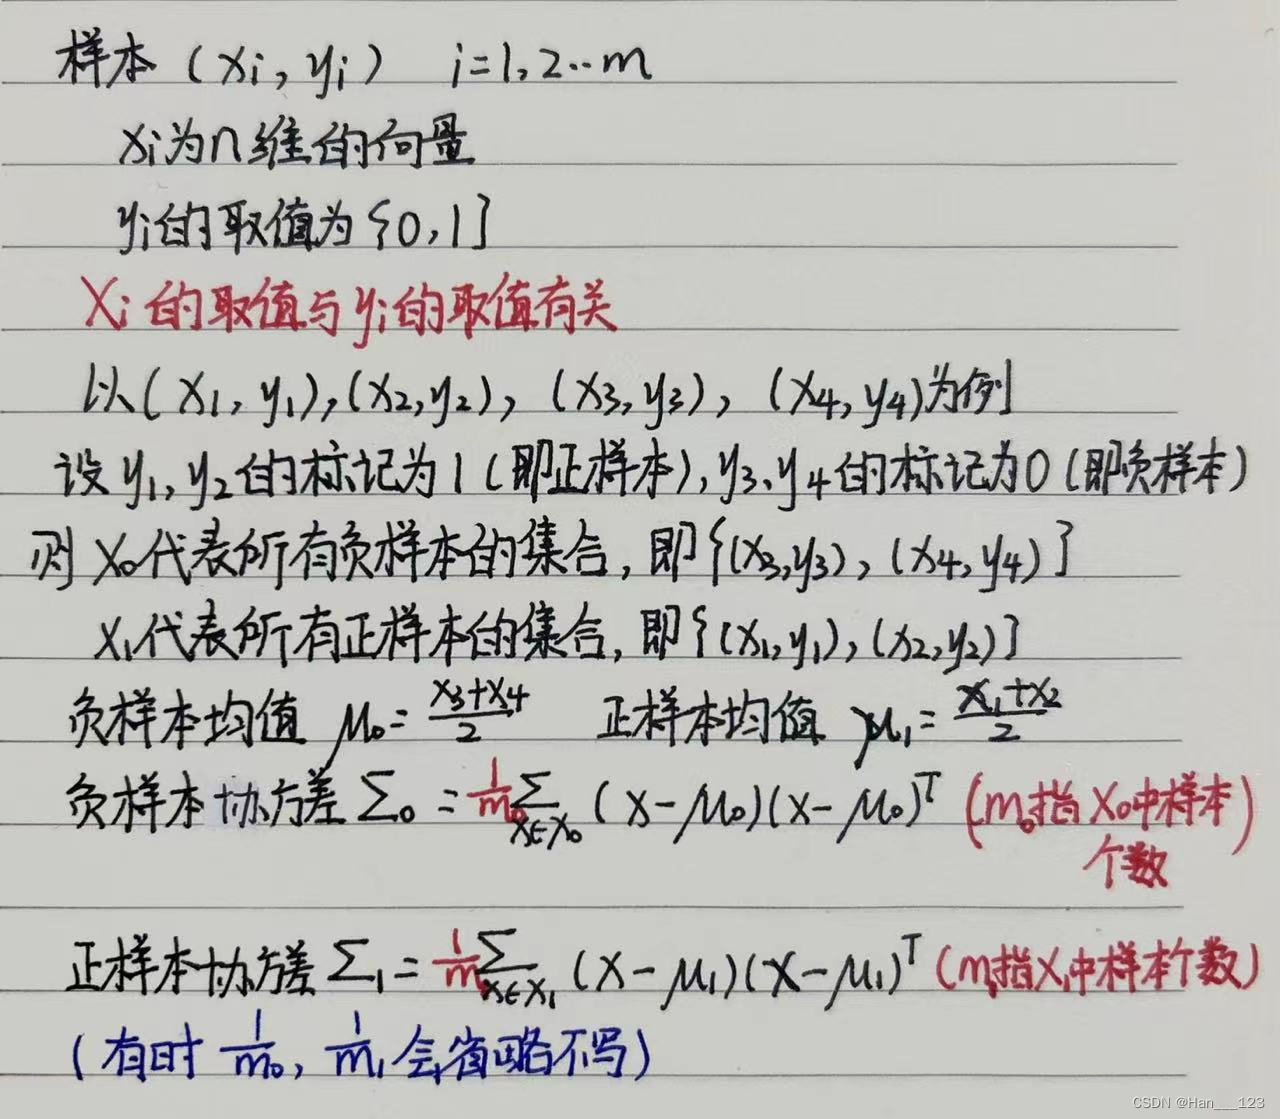 样本 (xi, yi) i=1,2··m
xi为n维的向量
yi的取值为{0,1}
Xi的取值与yi的取值有关
以(x1, y1),(x2,y2), (x3,y3), (x4,y4)为例
设y1,y2的标记为1(即正样本),y3、y4的标记为0(即负样本)
则X0代表所有负样本的集合,即{(x3,y3),(x4,y4)}
X1代表所有正样本的集合,即{(x1,y1),(x2,y2)}
负样本均值 μ0=(x3+x4)/2 正样本均值 μ1=(x1+x2)/2
负样本协方差Σ0 = 1/m0 Σ x∈X0 (x-μ0)(x-μ0)^T (m0指X0中样本
个数)
正样本协方差Σ1 = 1/m1 Σ x∈X1 (x-μ1)(x-μ1)^T (m1指X1中样本个数)
(有时 1/m0, 1/m1 会省略不写)
CSDN @Han___123